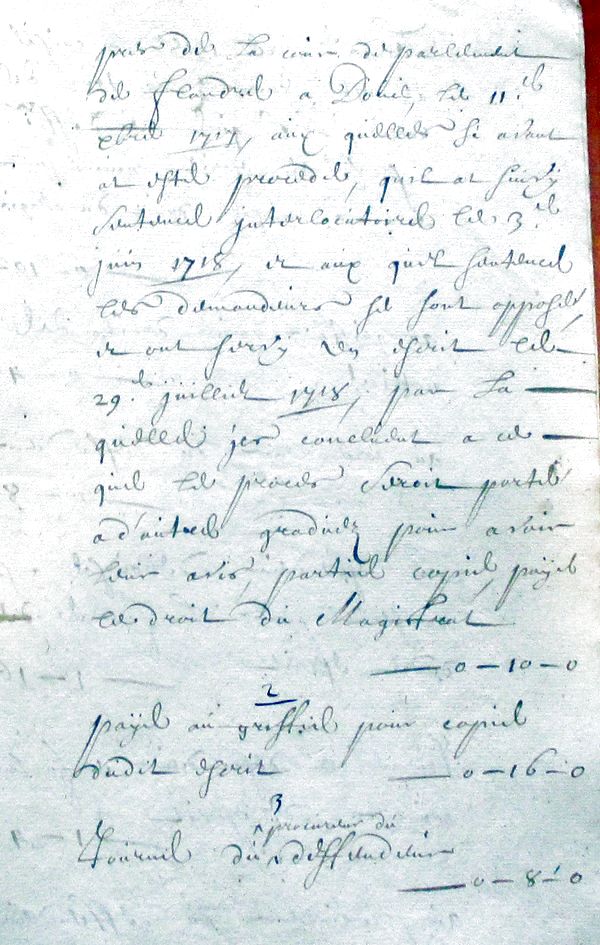 pres de la cour de parlement
de flandre a Doüi, le 11.e
xbre 1717, aux quelles si avant
at esté procedé, qu'il at suivy
sentence jnterlocutoire le 3.e
juin 1718, et aux quel sentence
les demandeurs se sont opposé,
et ont servy un escrit le
29.e juillie 1718, par la
quelle jes concluent a ce
que le proces seroit porté
a d'autre graduez pour avoir
leur avis, partie copie, payé
le droit du Magistrat
0 - 10 - 0
2
payé au greffie pour copie
dudit escrit 0 - 16 - 0
3
procureur du
du deffendeur
0 - 8 - 0